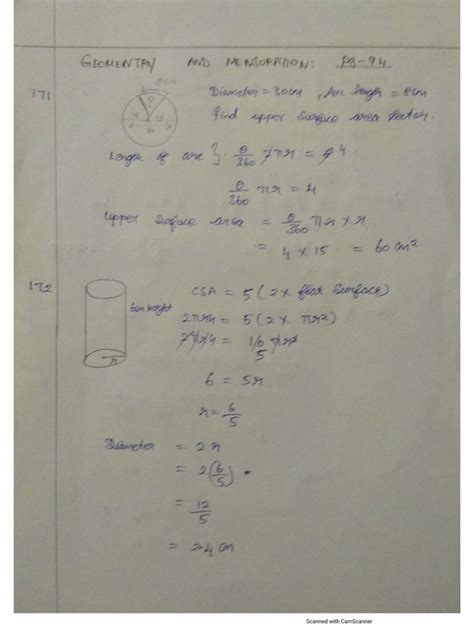 GEOMENTRY AND MENSORATION: Pg-94
8cm
171
Diameter = 30cm, Arc length = 8cm
find upper surface area sector.
θ
15 15
30
Length of arc } θ/360 2πr = 8 4
θ/360 πr = 4
upper surface area = θ/360 πr x r
= 4 x 15 = 60 cm²
172
6cm height
r
CSA = 5(2x flat surface)
2πrh = 5(2x πr²)
2πrh = 10 πr²
5
6 = 5r
r = 6/5
Diameter = 2r
= 2(6/5)
= 12/5
= 2.4 cm
Scanned with CamScanner